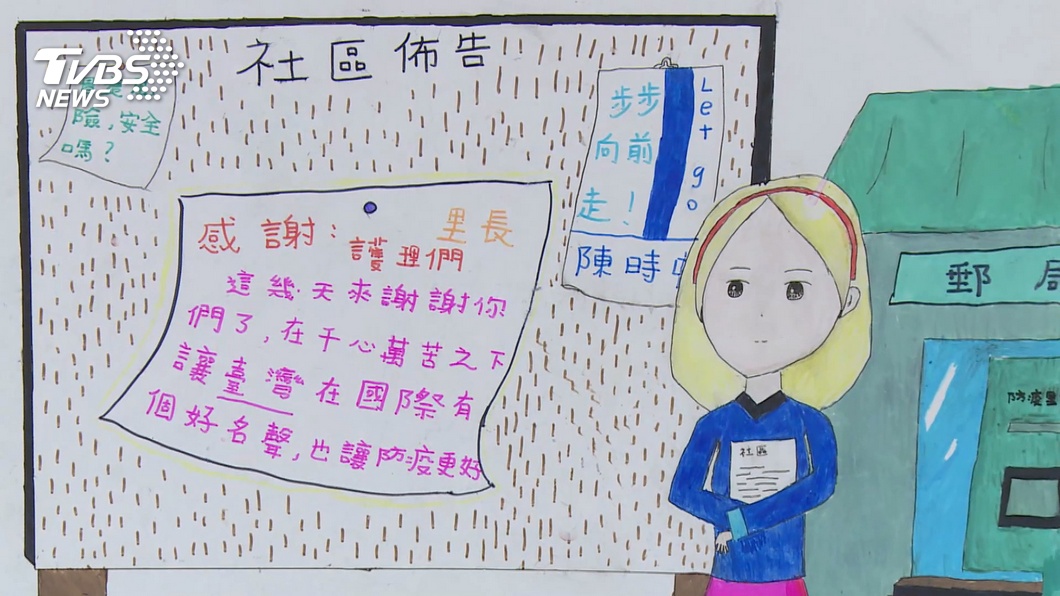 TVBS
NEWS
社區佈告
險,安全
嗎?
步步
向前
走!
Let go
陳時
感謝:
里長
護理們
這幾天來謝謝你
們了,在千心萬苦之下
讓臺灣在國際有
個好名聲,也讓防疫更好
社區
郵局
防疫